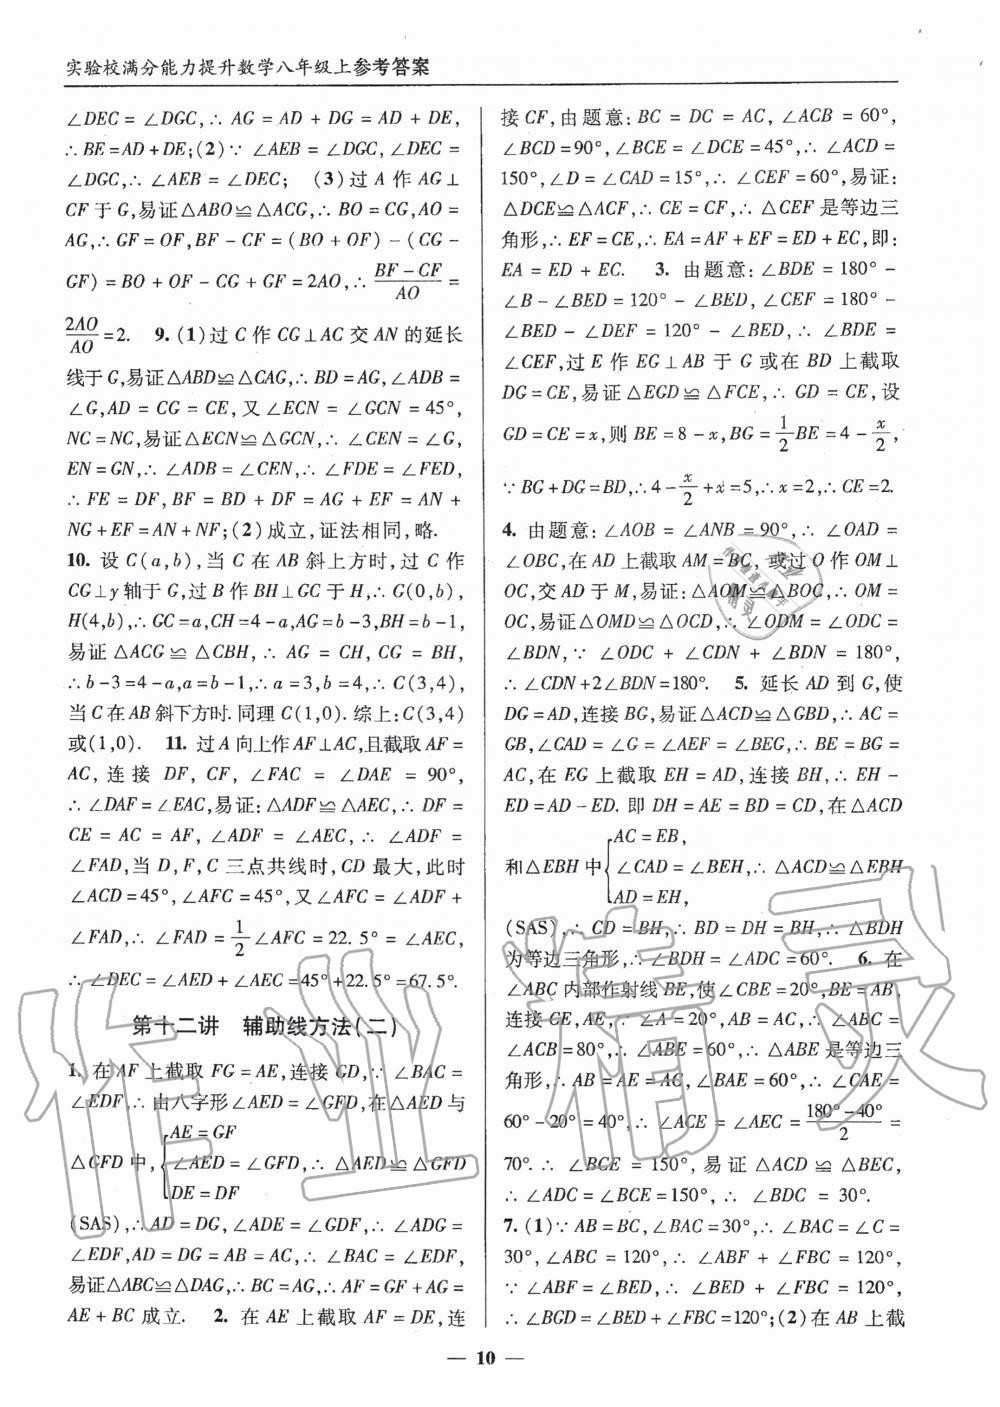 实验校满分能力提升数学八年级上参考答案
∠DEC = ∠DGC,∴ AG = AD + DG = AD + DE,
∴ BE = AD + DE;(2)∵ ∠AEB = ∠DGC, ∠DEC =
∠DGC,∴ ∠AEB = ∠DEC; (3)过 A 作 AG⊥
CF 于 G,易证△ABO≌△ACG,∴ BO = CG,AO =
AG,∴ GF = OF,BF - CF = (BO + OF) - (CG -
GF) = BO + OF - CG + GF = 2AO,∴ (BF - CF)/AO =
2AO/AO = 2. 9. (1)过 C 作 CG⊥AC 交 AN 的延长
线于 G,易证△ABD≌△CAG,∴ BD = AG,∠ADB =
∠G,AD = CG = CE,又∠ECN = ∠GCN = 45°,
NC = NC,易证△ECN≌△GCN,∴ ∠CEN = ∠G,
EN = GN,∴ ∠ADB = ∠CEN,∴ ∠FDE = ∠FED,
∴ FE = DF,BF = BD + DF = AG + EF = AN +
NG + EF = AN + NF;(2)成立,证法相同,略.
10. 设 C(a,b),当 C 在 AB 斜上方时,过 C 作
CG⊥y 轴于 G,过 B 作 BH⊥GC 于 H,∴ G(0,b),
H(4,b),∴ GC = a,CH = 4 - a,AG = b - 3,BH = b - 1,
易证 △ACG ≌ △CBH,∴ AG = CH,CG = BH,
∴ b - 3 = 4 - a,a = b - 1,∴ a = 3,b = 4,∴ C(3,4),
当 C 在 AB 斜下方时.同理 C(1,0).综上:C(3,4)
或(1,0). 11. 过 A 向上作 AF⊥AC,且截取 AF =
AC,连接 DF, CF, ∠FAC = ∠DAE = 90°,
∴ ∠DAF = ∠EAC,易证:△ADF≌△AEC,∴ DF =
CE = AC = AF, ∠ADF = ∠AEC,∴ ∠ADF =
∠FAD,当 D,F,C 三点共线时,CD 最大,此时
∠ACD = 45°,∠AFC = 45°,又∠AFC = ∠ADF +
∠FAD,∴ ∠FAD = 1/2∠AFC = 22.5° = ∠AEC,
∴ ∠DEC = ∠AED + ∠AEC = 45° + 22.5° = 67.5°.
第十二讲 辅助线方法(二)
1. 在 AF 上截取 FG = AE,连接 GD,∵ ∠BAC =
∠EDF,∴ 由八字形∠AED = ∠GFD,在△AED 与
△GFD 中,{AE = GF
∠AED = ∠GFD,∴ △AED≌△GFD
DE = DF
(SAS),∴ AD = DG,∠ADE = ∠GDF,∴ ∠ADG =
∠EDF,AD = DG = AB = AC,∴ ∠BAC = ∠EDF,
易证△ABC≌△DAG,∴ BC = AG,∴ AF = GF + AG =
AE + BC 成立. 2. 在 AE 上截取 AF = DE,连
接 CF,由题意:BC = DC = AC, ∠ACB = 60°,
∠BCD = 90°,∠BCE = ∠DCE = 45°,∴ ∠ACD =
150°,∠D = ∠CAD = 15°,∴ ∠CEF = 60°,易证:
△DCE≌△ACF,∴ CE = CF,∴ △CEF 是等边三
角形,∴ EF = CE,∴ EA = AF + EF = ED + EC,即:
EA = ED + EC. 3. 由题意:∠BDE = 180° -
∠B - ∠BED = 120° - ∠BED, ∠CEF = 180° -
∠BED - ∠DEF = 120° - ∠BED,∴ ∠BDE =
∠CEF,过 E 作 EG⊥AB 于 G 或在 BD 上截取
DG = CE,易证△EGD≌△FCE,∴ GD = CE,设
GD = CE = x,则 BE = 8 - x,BG = 1/2BE = 4 - x/2,
∵ BG + DG = BD,∴ 4 - x/2 + x = 5,∴ x = 2,∴ CE = 2.
4. 由题意:∠AOB = ∠ANB = 90°,∴ ∠OAD =
∠OBC,在 AD 上截取 AM = BC, 或过 O 作 OM⊥
OC,交 AD 于 M,易证:△AOM≌△BOC,∴ OM =
OC,易证△OMD≌△OCD,∴ ∠ODM = ∠ODC =
∠BDN,∵ ∠ODC + ∠CDN + ∠BDN = 180°,
∴ ∠CDN + 2∠BDN = 180°. 5. 延长 AD 到 G,使
DG = AD,连接 BG,易证△ACD≌△GBD,∴ AC =
GB,∠CAD = ∠G = ∠AEF = ∠BEG,∴ BE = BG =
AC,在 EG 上截取 EH = AD,连接 BH,∴ EH -
ED = AD - ED. 即 DH = AE = BD = CD,在△ACD
和△EBH 中{AC = EB,
∠CAD = ∠BEH,∴ △ACD≌△EBH
AD = EH,
(SAS),∴ CD = BH,∴ BD = DH = BH,∴ △BDH
为等边三角形,∴ ∠BDH = ∠ADC = 60°. 6. 在
∠ABC 内部作射线 BE,使∠CBE = 20°,BE = AB,
连接 CE,AE,∴ ∠A = 20°,AB = AC,∴ ∠ABC =
∠ACB = 80°,∴ ∠ABE = 60°,∴ △ABE 是等边三
角形,∴ AB = AE = AC,∠BAE = 60°,∴ ∠CAE =
60° - 20° = 40°,∴ ∠ACE = ∠AEC = (180° - 40°)/2 =
70°. ∴ ∠BCE = 150°,易证 △ACD ≌ △BEC,
∴ ∠ADC = ∠BCE = 150°,∴ ∠BDC = 30°.
7. (1)∵ AB = BC,∠BAC = 30°,∴ ∠BAC = ∠C =
30°,∠ABC = 120°,∴ ∠ABF + ∠FBC = 120°,
∵ ∠ABF = ∠BED,∴ ∠BED + ∠FBC = 120°,
∴ ∠BGD = ∠BED + ∠FBC = 120°;(2)在 AB 上截
— 10 —
作业精灵